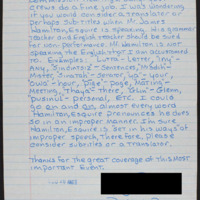 you are doing a fine job. I was wondering
if you would consider a translator or
perhaps sub titles when Mr. James
Hamilton, Esquire is speaking. His grammer
teacher and English teacher should be sued
for non performance. Mr. Hamilton is not
speaking the English that I am accustomed
to. Examples: Lutta - Letter, Iny -
Any, Sintints - Sentences, Mistah -
Mister, - Server, Ya - your,
Owa - hour, - Page, Mating -
Meeting, Thays - there, Glin - Glenn,
Pusinul - personal, ETC. I could
go on and on, almost every word
Hamilton, Esquire pronounces he does
so in an improper manner. I'm sure
Hamilton, Esquire is set in his ways of
improper speech, therefore, please
consider subtitles or a translator.
Thanks for the great coverage of this most
important event.